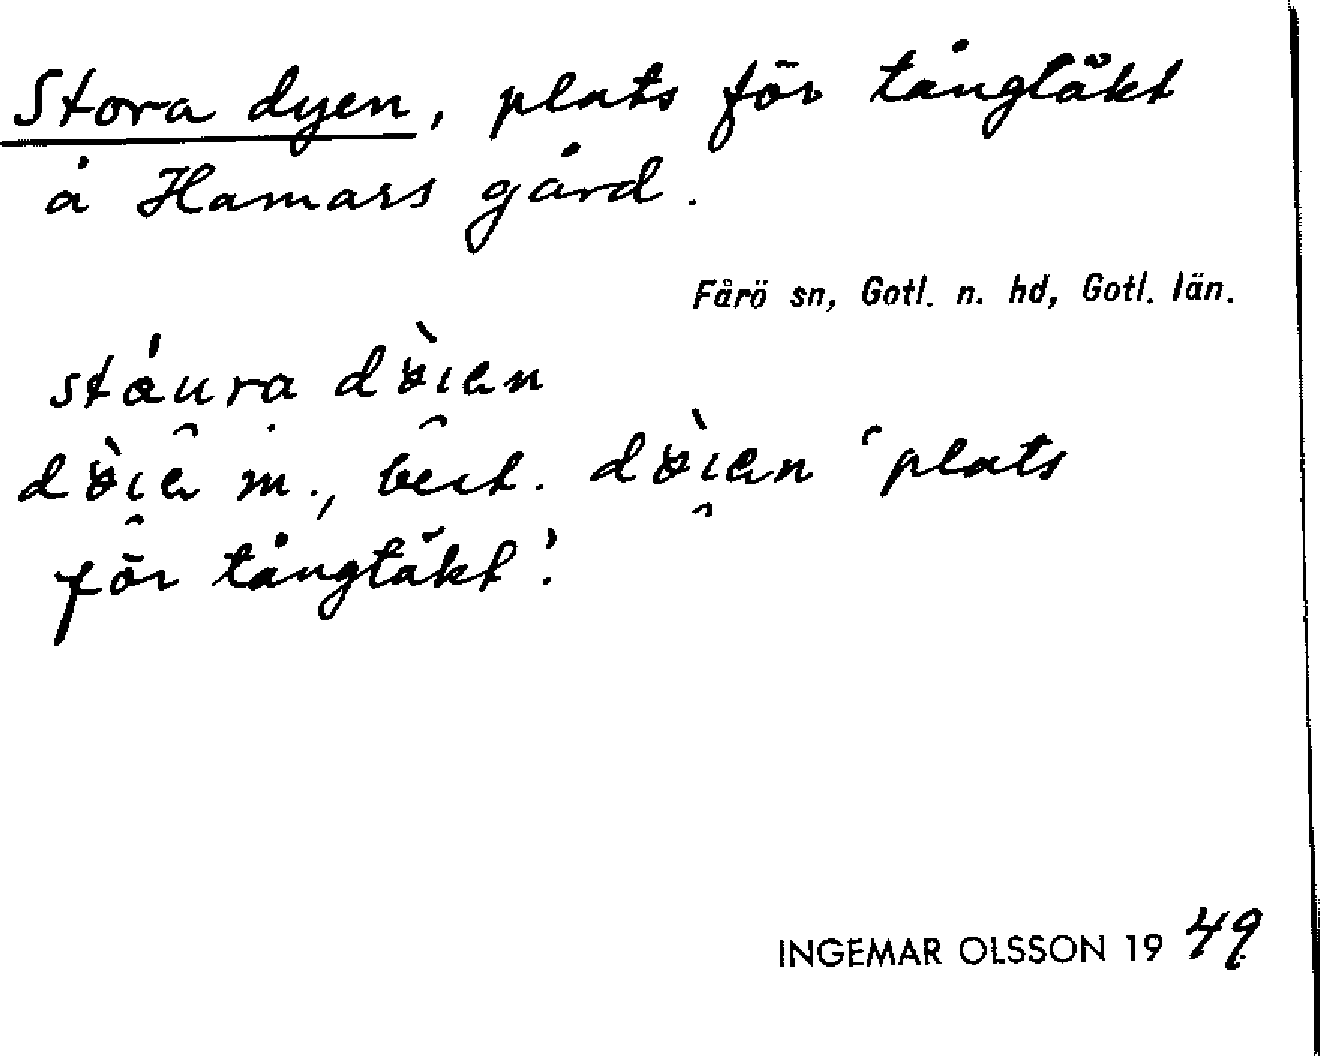 Stora dyen, plats för tångtäkt
å Hamars gård.
Fårö sn, Gotl. n. hd, Gotl. län.
stáu̯ra dɵ̀i̯en
dɵ̀i̯e m., best. dɵ̀i̯en 'plats
för tångtäkt'.
INGEMAR OLSSON 1949